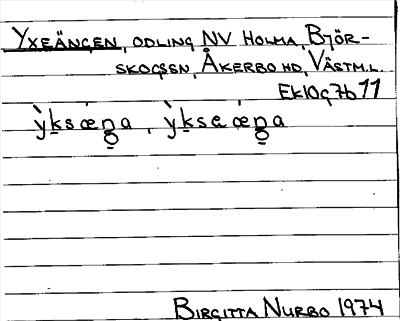 YXEÄNGEN, ODLING NV HOLMA, BJÖR-
SKOGSSN, ÅKERBO HD, VÄSTM.L.
EK10g7b 11
ỳksæŋa, ỳkseæŋa
BIRGITTA NURBO 1974